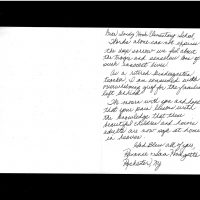 Dear Sandy Hook Elementary School,
Words alone can not express
the deep sorrow we feel about
the tragic and senseless loss of
such innocent lives.
As a retired kindergarten
teacher, I am consumed with
overwhelming grief for the families
left behind.
We mourn with you and hope
that your pain lessens with
the knowledge that these
beautiful children and heroic
adults are now safe at home
in heaven.
God Bless all of you,
Rochester, NY